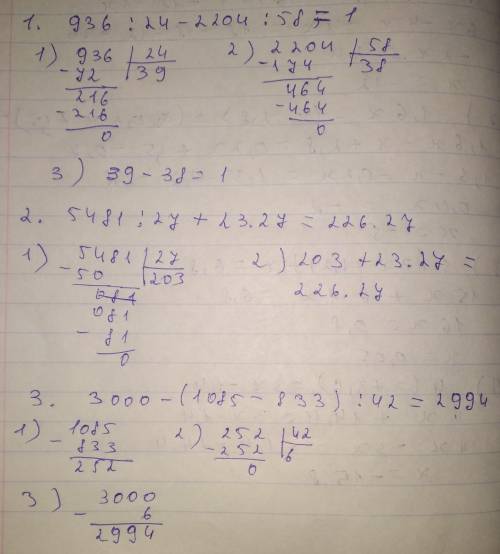 1. 936 : 24 - 2204 : 58 = 1
1) 936 | 24
- 72 | 39
216
- 216
0
2) 2204 | 58
- 174 | 38
464
- 464
0
3) 39 - 38 = 1
2. 5481 : 27 + 23.27 = 226.27
1) - 5481 | 27
50 | 203
081
081
- 81
0
2) 203 + 23.27 =
226.27
3. 3000 - (1085 - 833) : 42 = 2994
1) - 1085
833
252
2) 252 | 42
- 252 | 6
0
3) - 3000
6
2994